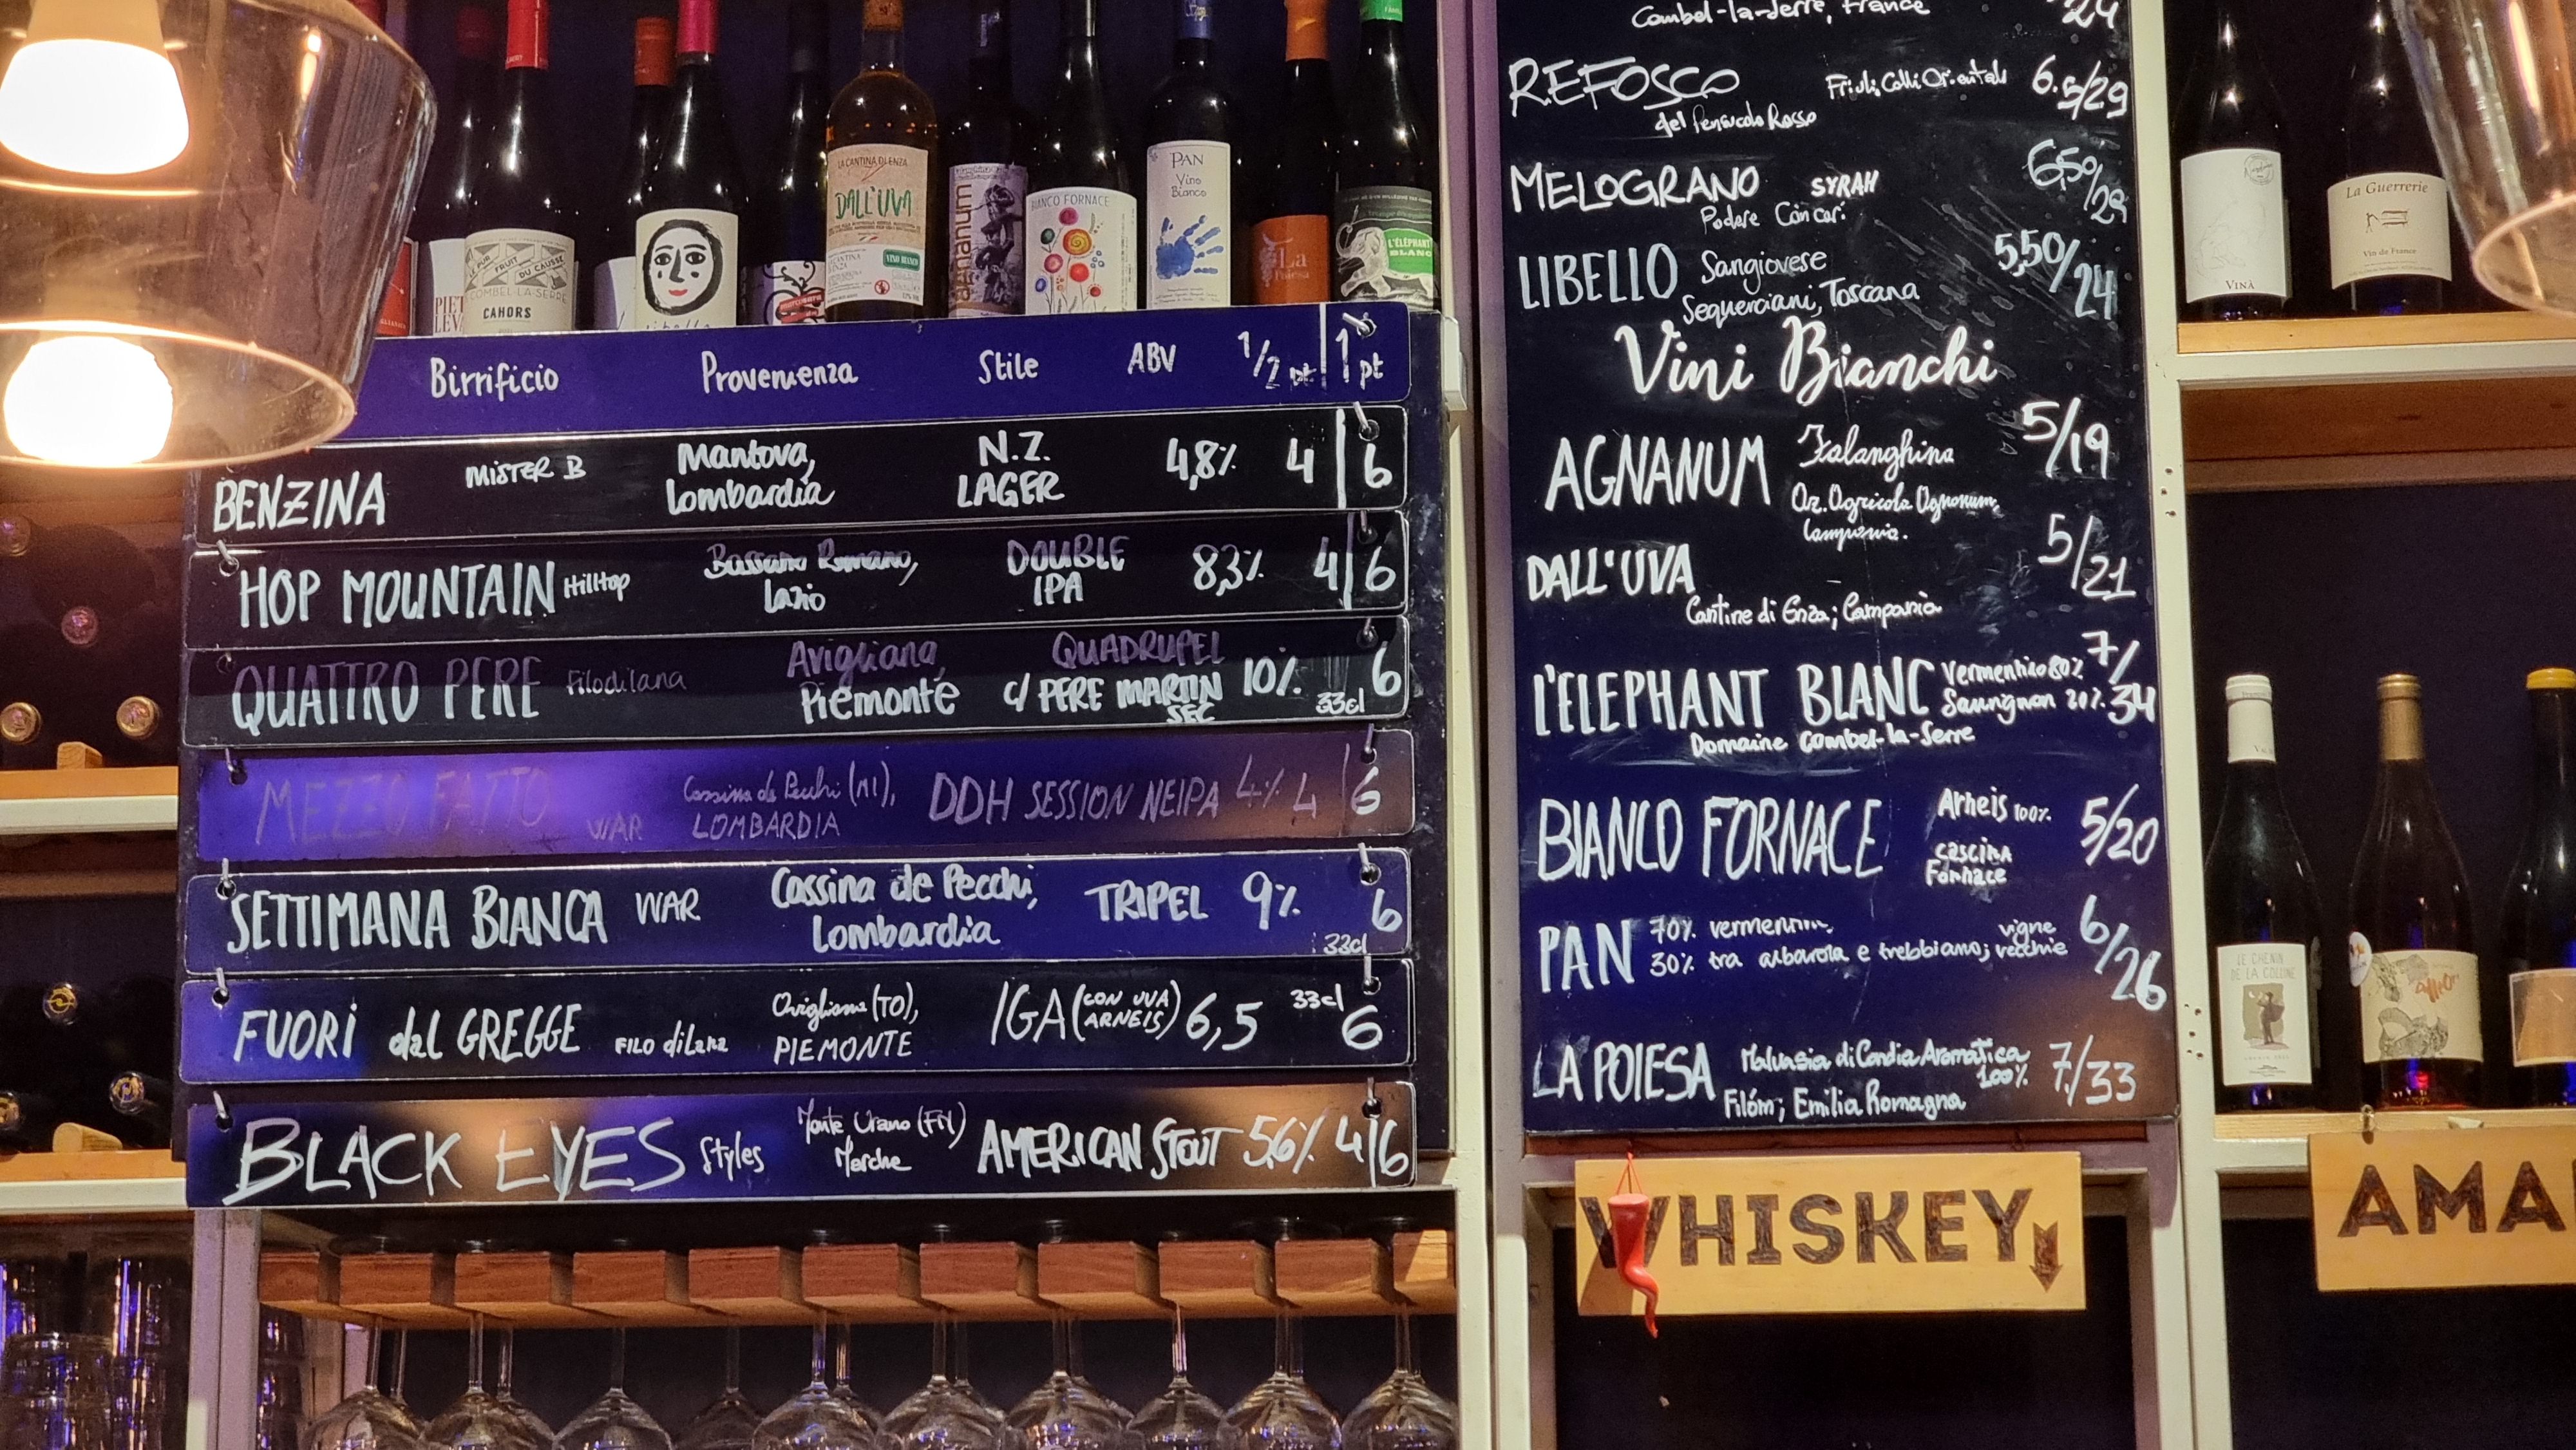 LE PUR
FRUIT
DU CAUSSE
COMBEL-LA-SERRE
CAHORS
LA CANTINA DI ENZA
DALL'UVA
VINO BIANCO
BIANCO FORNACE
PAN
Vino
Bianco
La
Poiesa
L'ÉLÉPHANT
BLANC
Birrificio Provenienza Stile ABV 1/2 pt 1 pt
BENZINA MISTER B Mantova, Lombardia N.Z. LAGER 4,8% 4 6
HOP MOUNTAIN Hilltop Bassano Romano, Lazio DOUBLE IPA 8,3% 4 6
QUATTRO PERE Filodilana Avigliana, Piemonte QUADRUPEL c/ PERE MARTIN SEC 10% 33cl 6
MEZZO FATTO WAR Cassina de Pecchi (MI), LOMBARDIA DDH SESSION NEIPA 4% 4 6
SETTIMANA BIANCA WAR Cassina de Pecchi, Lombardia TRIPEL 9% 33cl 6
FUORI dal GREGGE FILO diLana Avigliana (TO), PIEMONTE IGA (CON UVA ARNEIS) 6,5 33cl 6
BLACK EYES Styles Monte Urano (FM) Marche AMERICAN STOUT 5,6% 4 6
Combel-la-Serre, France /24
REFOSCO Friuli Colli Orientali 6.5/29
del Peduncolo Rosso
MELOGRANO SYRAH 6,50/29
Podere Còncori
LIBELLO Sangiovese 5,50/24
Sequerciani, Toscana
Vini Bianchi
AGNANUM Falanghina 5/19
Az. Agricola Agnanum,
Campania.
DALL'UVA 5/21
Cantine di Enza; Campania
L'ELEPHANT BLANC Vermentino 80% Sauvignon 20% 7/34
Domaine Combel-la-Serre
BIANCO FORNACE Arneis 100% 5/20
cascina
Fornace
PAN 70% vermentino 6/26
30% tra albarola e trebbiano; vigne vecchie
LA POIESA Malvasia di Candia Aromatica 100% 7/33
Filóm; Emilia Romagna
WHISKEY
VINÀ
La Guerrerie
Vin de France
LE CHENIN
DE LA COLLINE
AMA